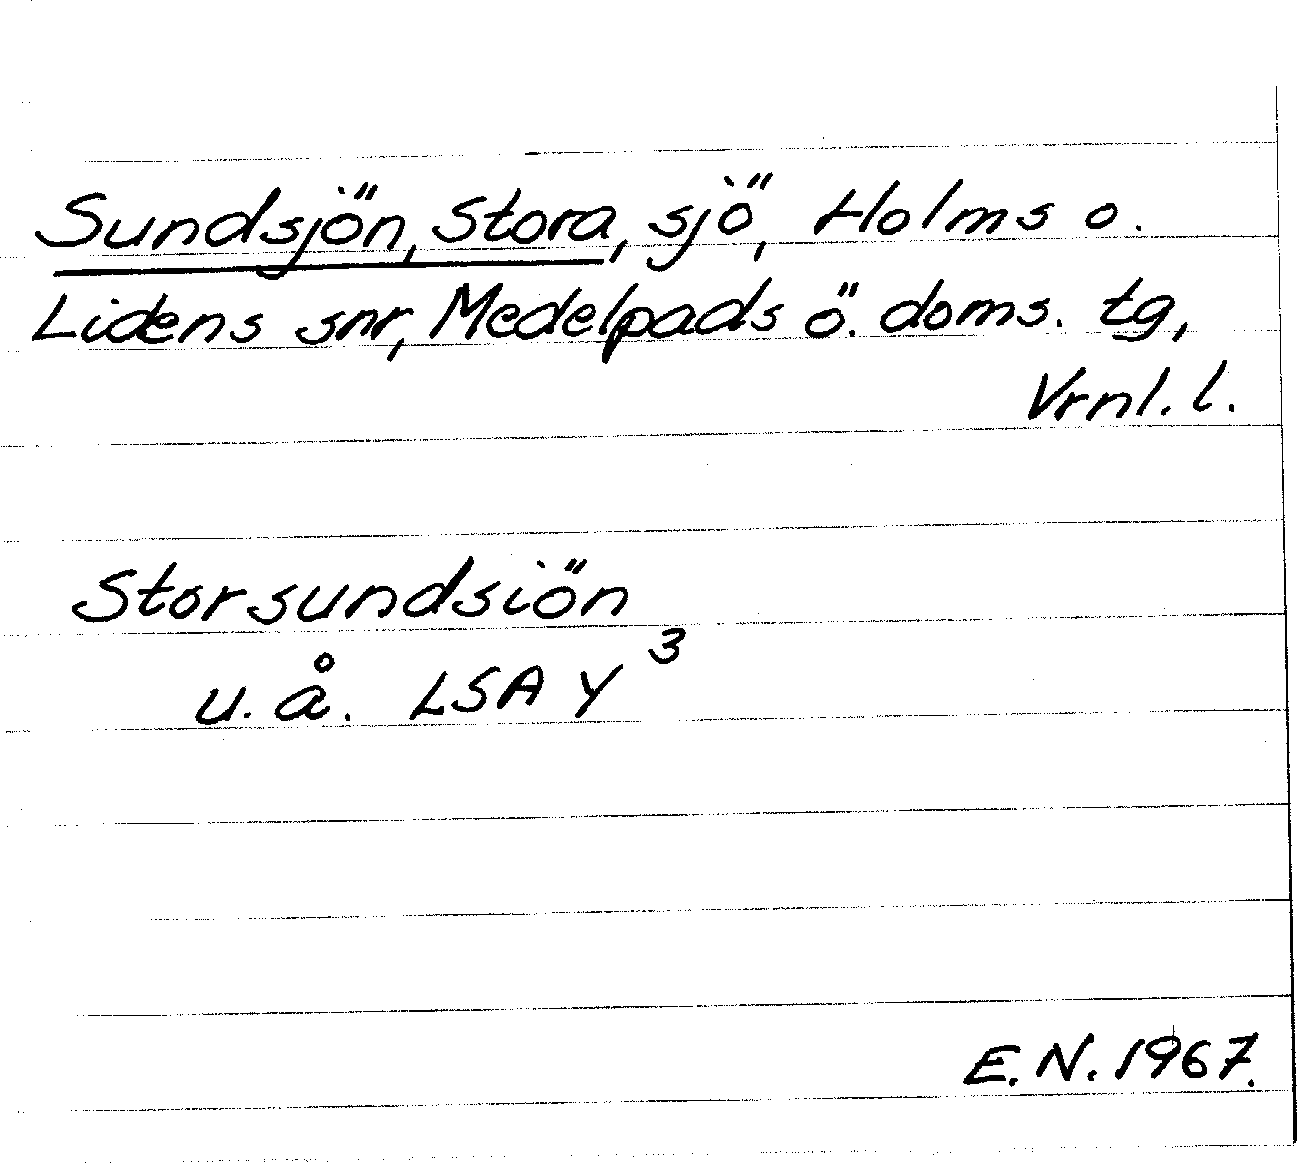 Sundsjön, Stora, sjö, Holms o.
Lidens snr, Medelpads ö. doms. tg,
Vrnl. l.
Storsundsiön
u. å. LSA Y 3
E. N. 1967.